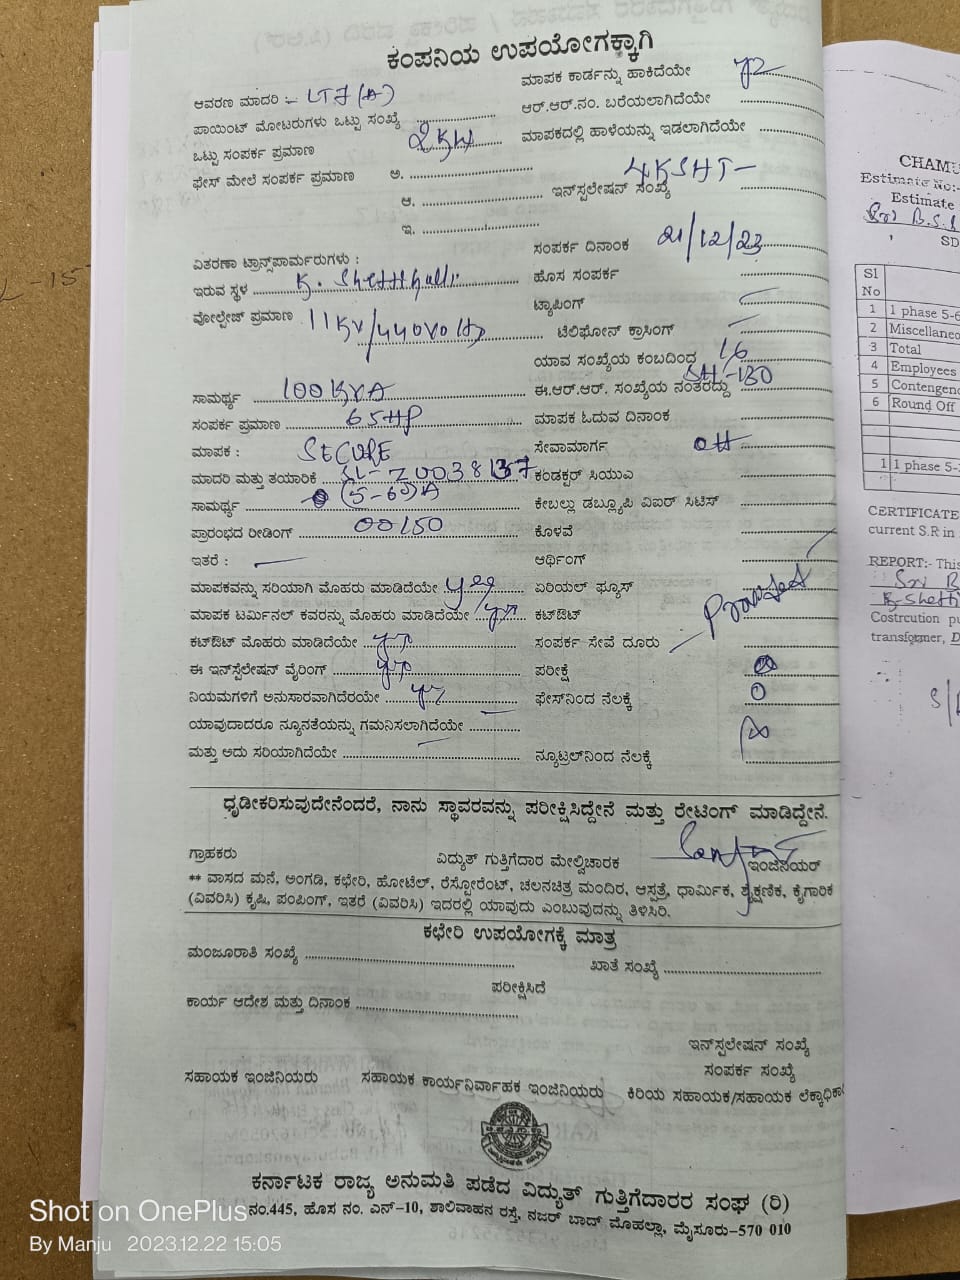 ಕಂಪನಿಯ ಉಪಯೋಗಕ್ಕಾಗಿ
ಆವರಣ ಮಾದರಿ :- LT7(A)
ಪಾಯಿಂಟ್ ಮೋಟರುಗಳು ಒಟ್ಟು ಸಂಖ್ಯೆ
ಒಟ್ಟು ಸಂಪರ್ಕ ಪ್ರಮಾಣ 2KW
ಫೇಸ್ ಮೇಲೆ ಸಂಪರ್ಕ ಪ್ರಮಾಣ ಅ.
ಆ.
ಇ.
ವಿತರಣಾ ಟ್ರಾನ್ಸ್‌ಪಾರ್ಮರುಗಳು :
ಇರುವ ಸ್ಥಳ K. Shettihalli
ವೋಲ್ಟೇಜ್ ಪ್ರಮಾಣ 11KV/440Volts
ಸಾಮರ್ಥ್ಯ 100KVA
ಸಂಪರ್ಕ ಪ್ರಮಾಣ 65HP
ಮಾಪಕ : SECURE
ಮಾದರಿ ಮತ್ತು ತಯಾರಿಕೆ SL-Z0038137
ಸಾಮರ್ಥ್ಯ (5-60)A
ಪ್ರಾರಂಭದ ರೀಡಿಂಗ್ 00150
ಇತರೆ :
ಮಾಪಕವನ್ನು ಸರಿಯಾಗಿ ಮೊಹರು ಮಾಡಿದೆಯೇ yes
ಮಾಪಕ ಟರ್ಮಿನಲ್ ಕವರನ್ನು ಮೊಹರು ಮಾಡಿದೆಯೇ yes
ಕಟ್‌ಔಟ್ ಮೊಹರು ಮಾಡಿದೆಯೇ yes
ಈ ಇನ್‌ಸ್ಟಲೇಷನ್ ವೈರಿಂಗ್ yes
ನಿಯಮಗಳಿಗೆ ಅನುಸಾರವಾಗಿದೆರಯೇ yes
ಯಾವುದಾದರೂ ನ್ಯೂನತೆಯನ್ನು ಗಮನಿಸಲಾಗಿದೆಯೇ
ಮತ್ತು ಅದು ಸರಿಯಾಗಿದೆಯೇ
ಮಾಪಕ ಕಾರ್ಡನ್ನು ಹಾಕಿದೆಯೇ
ಆರ್.ಆರ್.ನಂ. ಬರೆಯಲಾಗಿದೆಯೇ
ಮಾಪಕದಲ್ಲಿ ಹಾಳೆಯನ್ನು ಇಡಲಾಗಿದೆಯೇ
ಇನ್‌ಸ್ಟಲೇಷನ್ ಸಂಖ್ಯೆ 4KSHT-
ಸಂಪರ್ಕ ದಿನಾಂಕ 21/12/23
ಹೊಸ ಸಂಪರ್ಕ
ಟ್ಯಾಪಿಂಗ್
ಟೆಲಿಫೋನ್ ಕ್ರಾಸಿಂಗ್
ಯಾವ ಸಂಖ್ಯೆಯ ಕಂಬದಿಂದ 16
ಈ.ಆರ್.ಆರ್. ಸಂಖ್ಯೆಯ ನಂತರದ್ದು SH-130
ಮಾಪಕ ಓದುವ ದಿನಾಂಕ
ಸೇವಾಮಾರ್ಗ OH
ಕಂಡಕ್ಟರ್ ಸಿಯುಎ
ಕೇಬಲ್ಲು ಡಬ್ಲ್ಯೂಪಿ ವಿಐರ್ ಸಿಟಿಸ್
ಕೊಳವೆ
ಆರ್ಥಿಂಗ್
ಏರಿಯಲ್ ಫ್ಯೂಸ್
ಕಟ್‌ಔಟ್ Provided
ಸಂಪರ್ಕ ಸೇವೆ ದೂರು
ಪರೀಕ್ಷೆ
ಫೇಸ್‌ನಿಂದ ನೆಲಕ್ಕೆ
ನ್ಯೂಟ್ರಲ್‌ನಿಂದ ನೆಲಕ್ಕೆ
ಧೃಡೀಕರಿಸುವುದೇನೆಂದರೆ, ನಾನು ಸ್ಥಾವರವನ್ನು ಪರೀಕ್ಷಿಸಿದ್ದೇನೆ ಮತ್ತು ರೇಟಿಂಗ್ ಮಾಡಿದ್ದೇನೆ.
ಗ್ರಾಹಕರು ವಿದ್ಯುತ್ ಗುತ್ತಿಗೆದಾರ ಮೇಲ್ವಿಚಾರಕ ಇಂಜಿನಿಯರ್
** ವಾಸದ ಮನೆ, ಅಂಗಡಿ, ಕಛೇರಿ, ಹೋಟೆಲ್, ರೆಸ್ಟೋರೆಂಟ್, ಚಲನಚಿತ್ರ ಮಂದಿರ, ಆಸ್ಪತ್ರೆ, ಧಾರ್ಮಿಕ, ಶೈಕ್ಷಣಿಕ, ಕೈಗಾರಿಕ
(ವಿವರಿಸಿ) ಕೃಷಿ, ಪಂಪಿಂಗ್, ಇತರೆ (ವಿವರಿಸಿ) ಇದರಲ್ಲಿ ಯಾವುದು ಎಂಬುವುದನ್ನು ತಿಳಿಸಿರಿ.
ಕಛೇರಿ ಉಪಯೋಗಕ್ಕೆ ಮಾತ್ರ
ಮಂಜೂರಾತಿ ಸಂಖ್ಯೆ ಖಾತೆ ಸಂಖ್ಯೆ
ಪರೀಕ್ಷಿಸಿದೆ
ಕಾರ್ಯ ಆದೇಶ ಮತ್ತು ದಿನಾಂಕ
ಇನ್‌ಸ್ಟಲೇಷನ್ ಸಂಖ್ಯೆ
ಸಂಪರ್ಕ ಸಂಖ್ಯೆ
ಸಹಾಯಕ ಇಂಜಿನಿಯರು ಸಹಾಯಕ ಕಾರ್ಯನಿರ್ವಾಹಕ ಇಂಜಿನಿಯರು ಕಿರಿಯ ಸಹಾಯಕ/ಸಹಾಯಕ ಲೆಕ್ಕಾಧಿಕಾ
ಕರ್ನಾಟಕ ರಾಜ್ಯ ಅನುಮತಿ ಪಡೆದ ವಿದ್ಯುತ್ ಗುತ್ತಿಗೆದಾರರ ಸಂಘ (ರಿ)
ನಂ.445, ಹೊಸ ನಂ. ಎನ್-10, ಶಾಲಿವಾಹನ ರಸ್ತೆ, ನಜರ್ ಬಾದ್ ಮೊಹಲ್ಲಾ, ಮೈಸೂರು-570 010
CHAMU
Estimate No:-
Estimate
Sri B.S.
SD
Sl
No
1 1 phase 5-6
2 Miscellaneo
3 Total
4 Employees
5 Contengenc
6 Round Off
1 1 phase 5-
CERTIFICATE
current S.R in
REPORT:- This
Sri B
K. Shetti
Costrcution pu
transformer, D
Shot on OnePlus
By Manju 2023.12.22 15:05